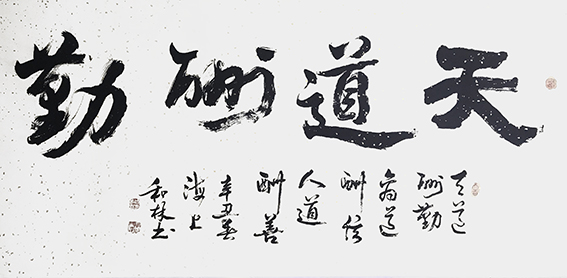 天道酬勤
天道
酬勤
商道
酬信
人道
酬善
辛丑
海上
和林书